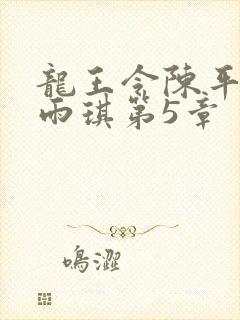 龍王令陳平
雨琪第5章
鳴澀